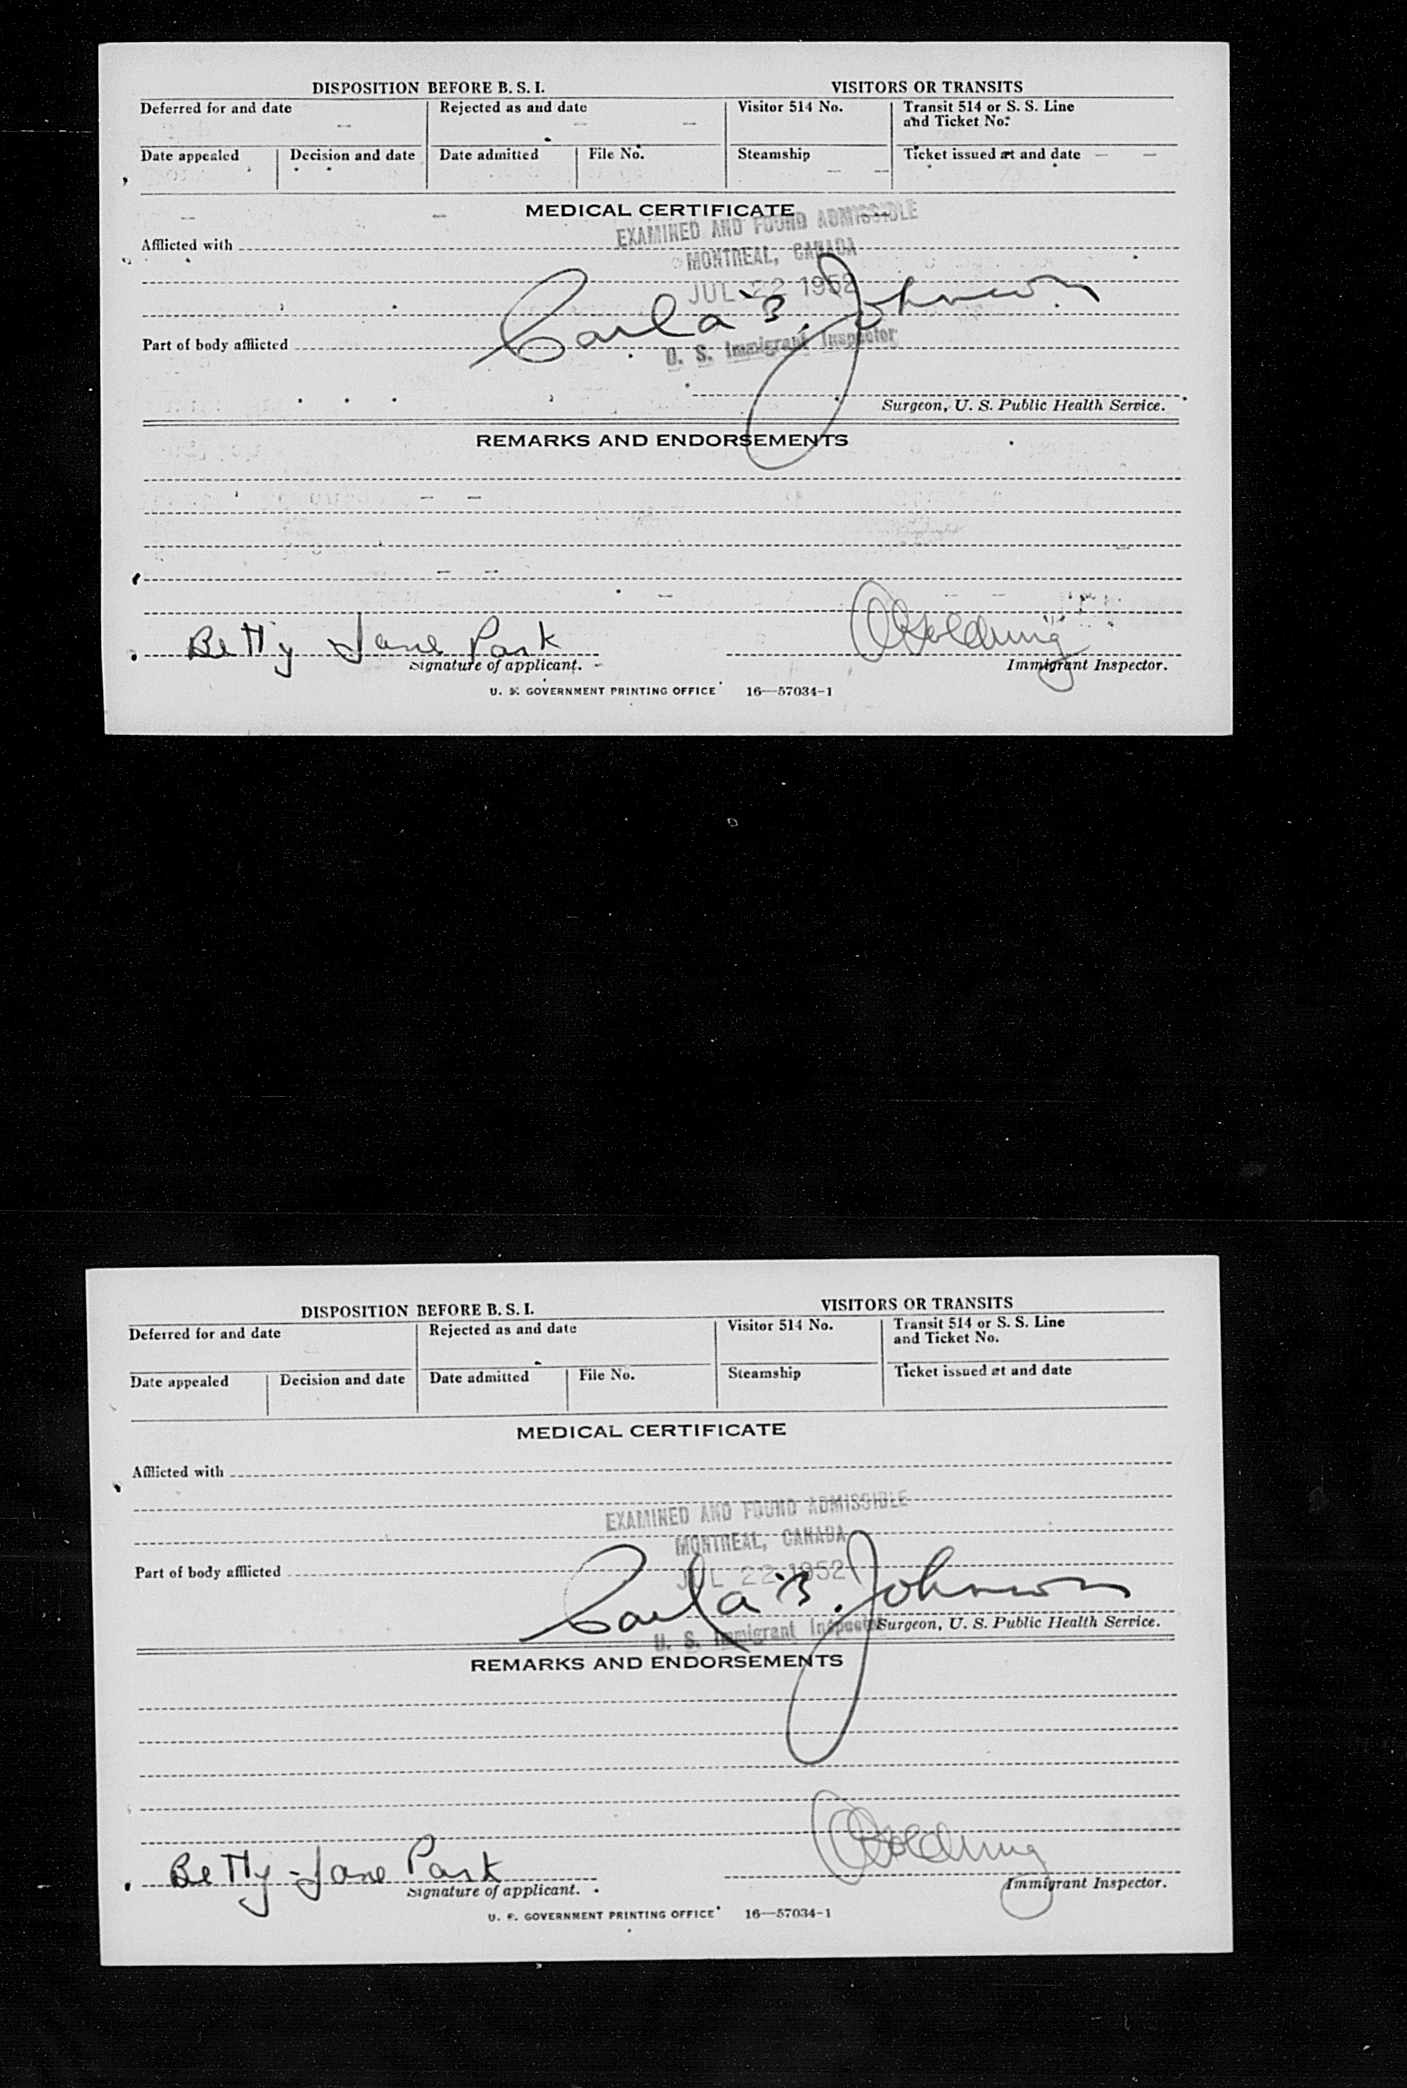 DISPOSITION BEFORE B. S. I. VISITORS OR TRANSITS
Deferred for and date Rejected as and date Visitor 514 No. Transit 514 or S. S. Line
and Ticket No.
Date appealed Decision and date Date admitted File No. Steamship Ticket issued at and date
MEDICAL CERTIFICATE
EXAMINED AND FOUND ADMISSIBLE
Afflicted with
MONTREAL, CANADA
JUL 22 1952
Carla B. Johnson
U. S. Immigrant Inspector
Part of body afflicted
Surgeon, U. S. Public Health Service.
REMARKS AND ENDORSEMENTS
Betty Jane Park
Signature of applicant. Immigrant Inspector.
U. S. GOVERNMENT PRINTING OFFICE 16—57034-1
DISPOSITION BEFORE B. S. I. VISITORS OR TRANSITS
Deferred for and date Rejected as and date Visitor 514 No. Transit 514 or S. S. Line
and Ticket No.
Date appealed Decision and date Date admitted File No. Steamship Ticket issued at and date
MEDICAL CERTIFICATE
Afflicted with
EXAMINED AND FOUND ADMISSIBLE
MONTREAL, CANADA
Part of body afflicted
JUL 22 1952
Carla B. Johnson
U. S. Immigrant Inspector
Surgeon, U. S. Public Health Service.
REMARKS AND ENDORSEMENTS
Betty-Jane Park
Signature of applicant. Immigrant Inspector.
U. S. GOVERNMENT PRINTING OFFICE 16—57034-1